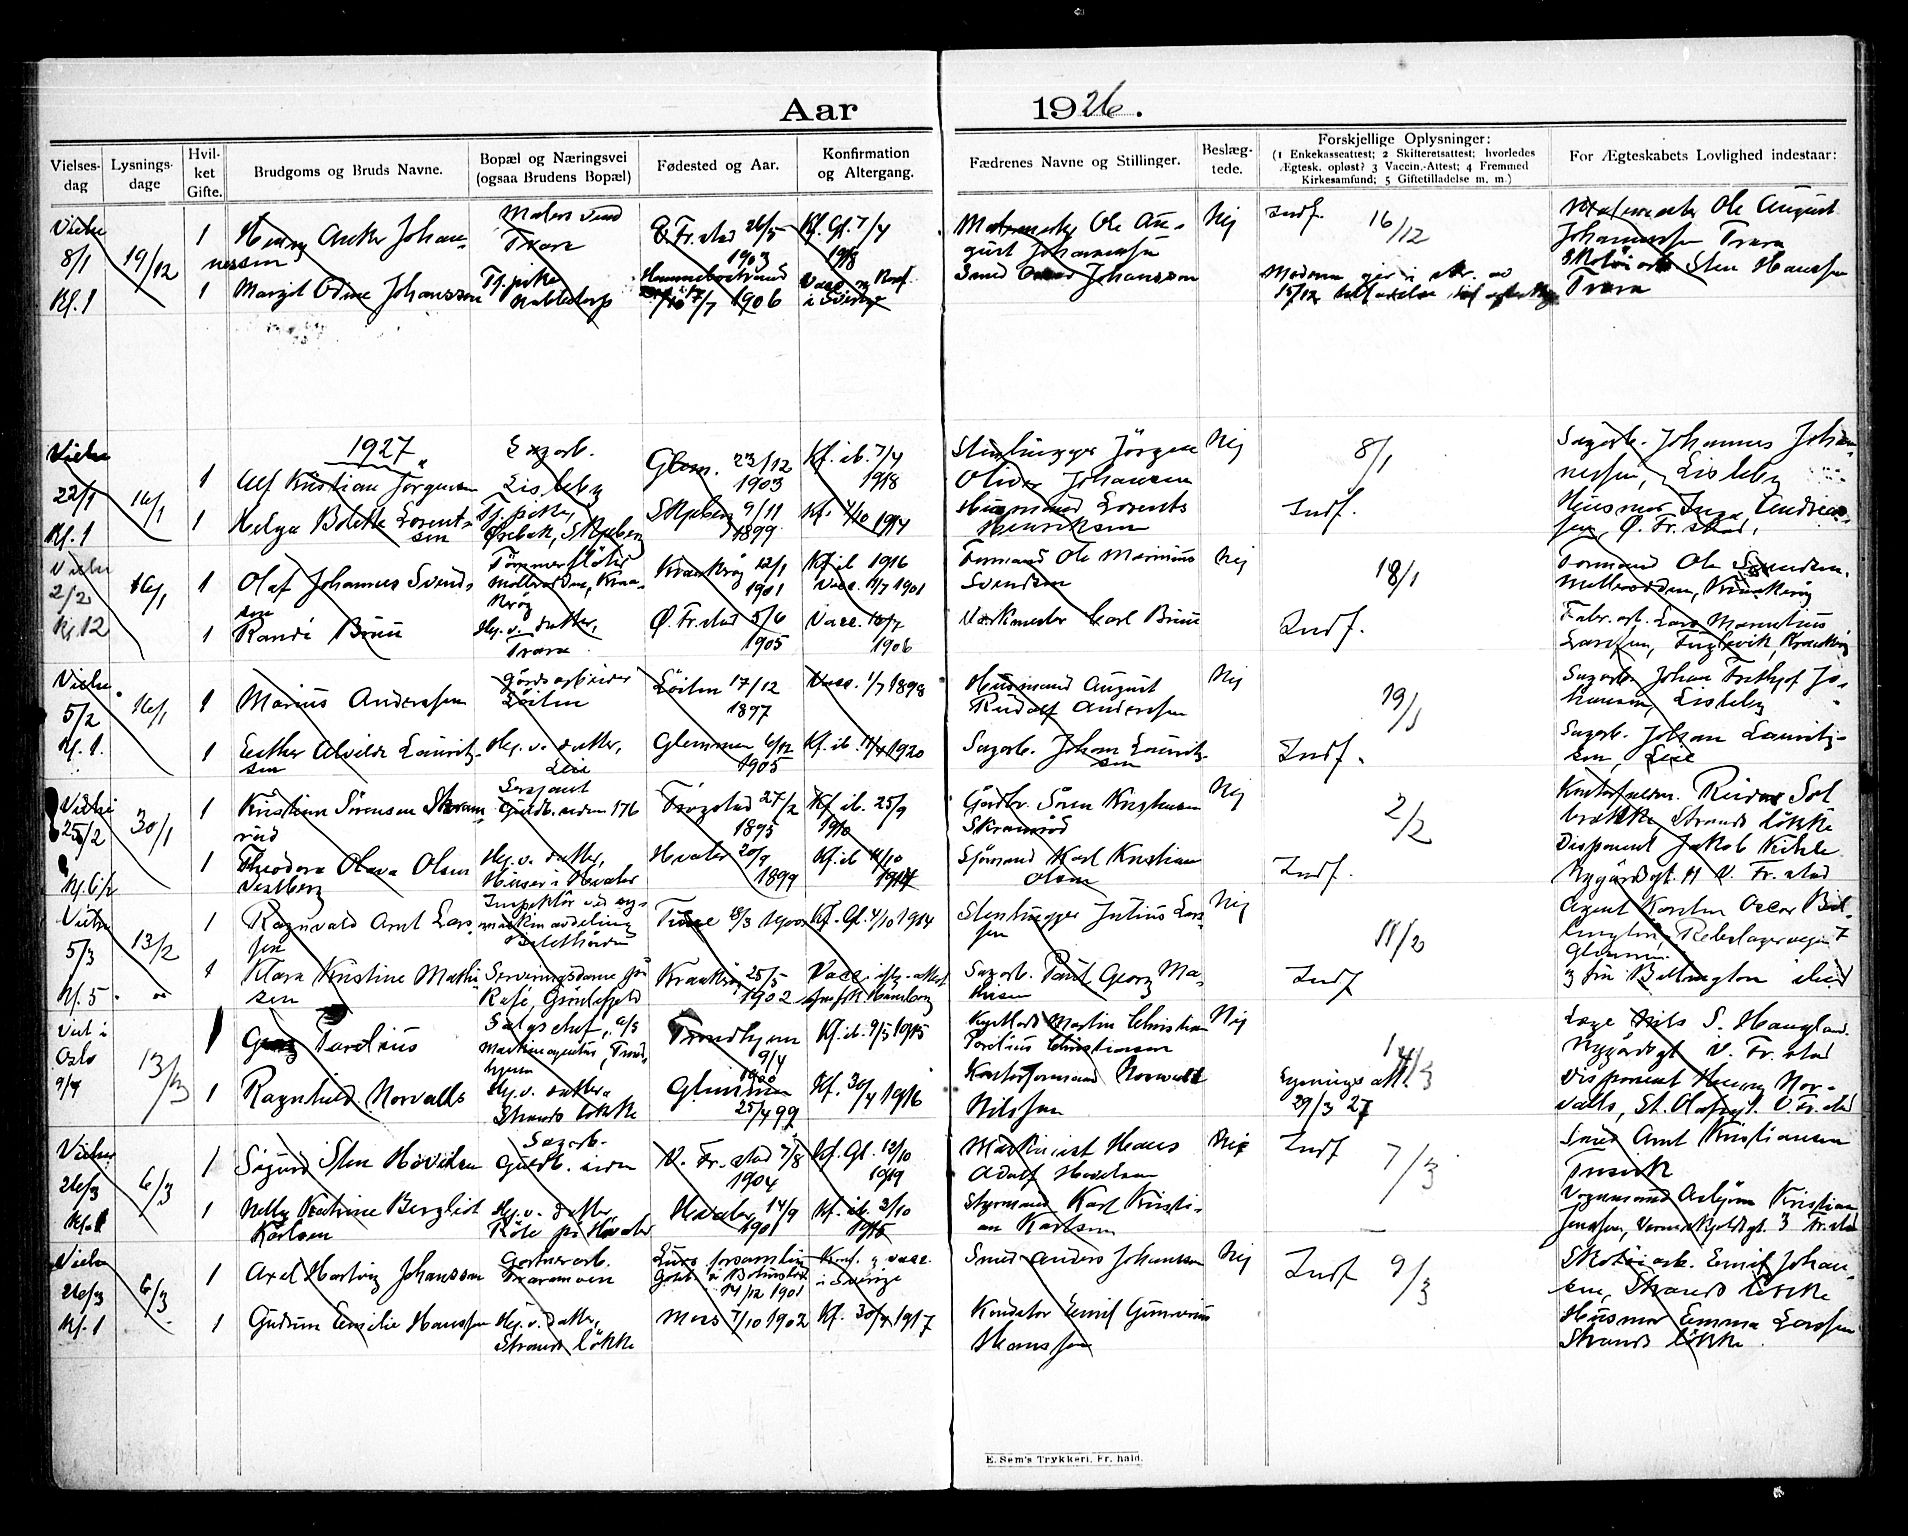 Aar 1926.
Vielses-dag
Lysnings-dage
Hvil-ket Gifte.
Brudgoms og Bruds Navne.
Bopæl og Næringsvei (ogsaa Brudens Bopæl)
Fødested og Aar.
Konfirmation og Altergang.
Fædrenes Navne og Stillinger.
Beslæg-tede.
Forskjellige Oplysninger:
(1 Enkekasseattest; 2 Skifteretsattest; hvorledes
Ægtesk. opløst? 3 Vaccin.-Attest; 4 Fremmed
Kirkesamfund; 5 Giftetilladelse m. m.)
For Ægteskabets Lovlighed indestaar:
Vielse 8/1 Kl. 1
19/12
1 Henry Anker Johan-
nessen
Malersvend
Trara
Ø Fr.stad 26/5
1903
Kf. Gl. 7/4
1918
Malermester Ole Au-
gust Johannessen
Nej
Indf. 16/12
Malermester Ole August
Johannessen Trara
1 Margit Odine Johansson
Tj.pike
Nabbetorp
17/7 1906
Vacc. og Konf.
i Sverige
Smed Johansson
Skotöiarb. Sten Hanssen
Trara
1927
Vielse 22/1 Kl. 1
16/1
1 Alf Kristian Jörgensen
Sagarb.
Lisleby
Glem. 23/12
1903
Kf. ib. 7/4
1918
Stenhugger Jörgen
Oliver Johansen
Nej
8/1
Sagarb. Johannes Johan-
nessen, Lisleby
1 Helga Bolette Lorent-
sen
Tj.pike,
Ørebek, Skjeberg
Skjeberg 9/11
1899
Kf. 4/10 1914
Husmand Lorents
Henriksen
Indf.
Husmor Inga Andreas-
sen, Ø. Fr.stad.
Vielse 2/2 Kl. 12
16/1
1 Olaf Johannes Svend-
sen
Tömmerfløter
Kraa-
kröy
Kraakröy 12/1
1901
Kf. ib 1916
Vacc. 11/7 1901
Formand Ole Marinius
Svendsen
Nej
18/1
Formand Ole Svendsen.
Kraakröy
1 Randi Bruu
Hj.v. datter,
Trara
Ø. Fr.stad 5/6
1905
Vacc. 10/7
1906
Verkmester Carl Bruu
Indf.
Fabr.arb. Lars Marentius
Larssen, Fuglevik, Kraakröy
Vielse 5/2 Kl. 1.
16/1
1 Marius Anderssen
Gårdsarbeider
Löiten
Löiten 17/12
1897
Vacc. 1/7 1898
Husmand August
Rudolf Anderssen
Nej
19/1
Sagarb. Johan Fritjof Jo-
hansen, Lisleby
1 Esther Alvilde Laurit-
sen
Hj.v. datter,
Leie
Glemmen 6/12
1905
Kf. ib. 11/4 1920
Sagarb. Johan Laurit-
sen
Indf.
Sagarb. Johan Laurit-
sen, Leie
Vielse 25/2 Kl. 6 1/2
30/1
1 Kristian Sörensen Skram-
rud
Sersjant
Guldb.siden 176
Trögstad 27/2
1895
Kf. ib. 25/9
1910
Gårdbr. Sören Kristiansen
Skramrud
Nej
2/2
Strands lökke
1 Theodora Olava Olsen
Vestberg
Hj.v. datter,
Huser i Hvaler
Hvaler 20/9
1899
Kf. ib 11/10
1914
Sjömand Karl Kristian
Olsen
Indf.
Disponent Jakob Kihle
Nygårdsgt. 11 V. Fr.stad
Vielse 5/3 Kl. 5
13/2
1 Ragnvald Arnt Lars-
sen
Inspektör ved sy-
maskinavdeling
Tune 18/3 1900
Kf. Gl. 4/10 1914
Stenhugger Julius Lars-
sen
Nej
11/2
Agent Karsten Oscar Bil-
lington, Rebslagerveien 7
Glemmen
1 Klara Kristine Mathi-
sen
Serveringsdame på
Kafé, Grönlifjeld
Kraakröy 25/5
1902
Sagarb. Paul Georg Ma-
thisen
Indf
Fru Billington ibid
Viet i Oslo 9/4
13/3
1 Georg Parelius
Salgschef, A/S
Maskinagentur, Trond-
hjem
Trondhjem
9/4
1900
Kf. ib. 9/5 1915
Martin Christian
Parelius Christiansen
Nej
14/3
Læge Nils S. Haugland.
Nygårdsgt V. Fr.stad
1 Ragnhild Norvalls
Hj.v. datter
Strands lökke
Glemmen
25/4 99
Kf. 30/4 1916
Kontorformand Norvald
Nilssen
29/3 27
Disponent Henry Nor-
valls, St. Olafsgt. V. Fr.stad
Vielse 26/3 Kl. 1
6/3
1 Sigurd Sten Hovelsen
Sagarb.
Guldb.siden
V. Fr.stad 7/8
1904
Kf. Gl. 12/10
1919
Maskinist Hans
Adolf Hovelsen
Nej
Indf 7/3
Smed Arnt Kristiansen
1 Nelly Katrine Bergliot
Karlsen
Hj.v. datter,
på Hvaler
Hvaler 14/9
1901
Kf. ib. 3/10
1915
Styrmand Karl Kristi-
an Karlsen
Vognmand Asbjörn Kristian
Jenssen, Fr.stad
Vielse 26/3 Kl. 1
6/3
1 Axel Hartvig Johansson
Gartnerarb.
Traramoen
Lurs forsamling
14/12 1901
Konf. og vacc.
i Sverige
Smed Anders Johansson
Nej
Indf 9/3
Skotöiarb. Emil Johan-
sen, Strands lökke
1 Gudrun Emilie Hanssen
Hj.v. datter,
Strands lökke
Moss 7/10 1902
Kf. 30/9 1917
Konduktör Emil Gunerius
Hanssen
Husmor Emma Larssen
Strands lökke.
E. Sem's Trykkeri, Fr.hald.